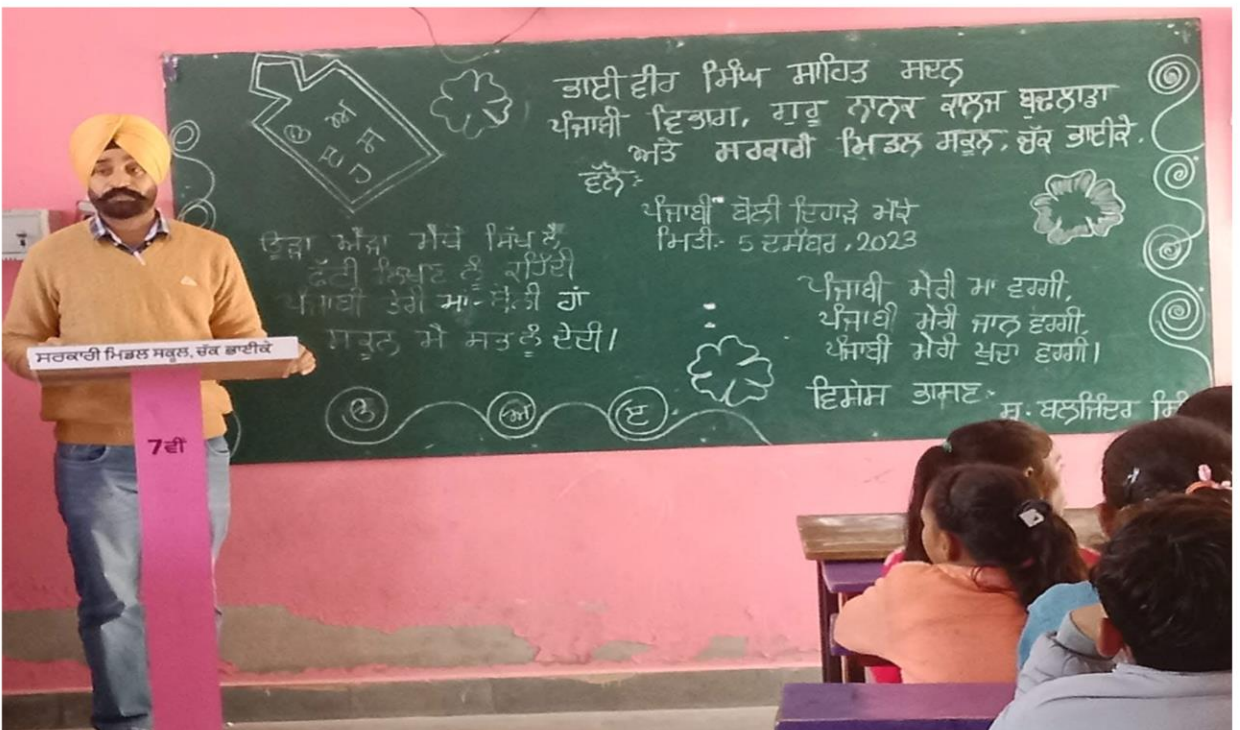 ਭਾਈ ਵੀਰ ਸਿੰਘ ਸਾਹਿਤ ਸਦਨ
ਪੰਜਾਬੀ ਵਿਭਾਗ, ਗੁਰੂ ਨਾਨਕ ਕਾਲਜ ਬੁਢਲਾਡਾ
ਅਤੇ ਸਰਕਾਰੀ ਮਿਡਲ ਸਕੂਲ, ਚੱਕ ਭਾਈਕੇ.
ਵੱਲੋਂ :-
ਪੰਜਾਬੀ ਬੋਲੀ ਦਿਹਾੜੇ ਮੌਕੇ
ਮਿਤੀ:- 5 ਦਸੰਬਰ, 2023
ੳ ਅ
ੲ ਸ
ਊੜਾ ਐੜਾ ਮੈਥੋਂ ਸਿੱਖ ਲੈ
ਫੱਟੀ ਲਿਖਣ ਨੂੰ ਰਹਿੰਦੀ
ਪੰਜਾਬੀ ਤੇਰੀ ਮਾਂ-ਬੋਲੀ ਹਾਂ
ਸਕੂਨ ਮੈਂ ਸਭ ਨੂੰ ਦੇਂਦੀ।
ਪੰਜਾਬੀ ਮੇਰੀ ਮਾਂ ਵਰਗੀ,
ਪੰਜਾਬੀ ਮੇਰੀ ਜਾਨ ਵਰਗੀ,
ਪੰਜਾਬੀ ਮੇਰੀ ਖੁਦਾ ਵਰਗੀ।
ਵਿਸੇਸ ਭਾਸਣ:-
ਸ. ਬਲਜਿੰਦਰ
ੳ ਅ ੲ
ਸਰਕਾਰੀ ਮਿਡਲ ਸਕੂਲ, ਚੱਕ ਭਾਈਕੇ
7ਵੀਂ